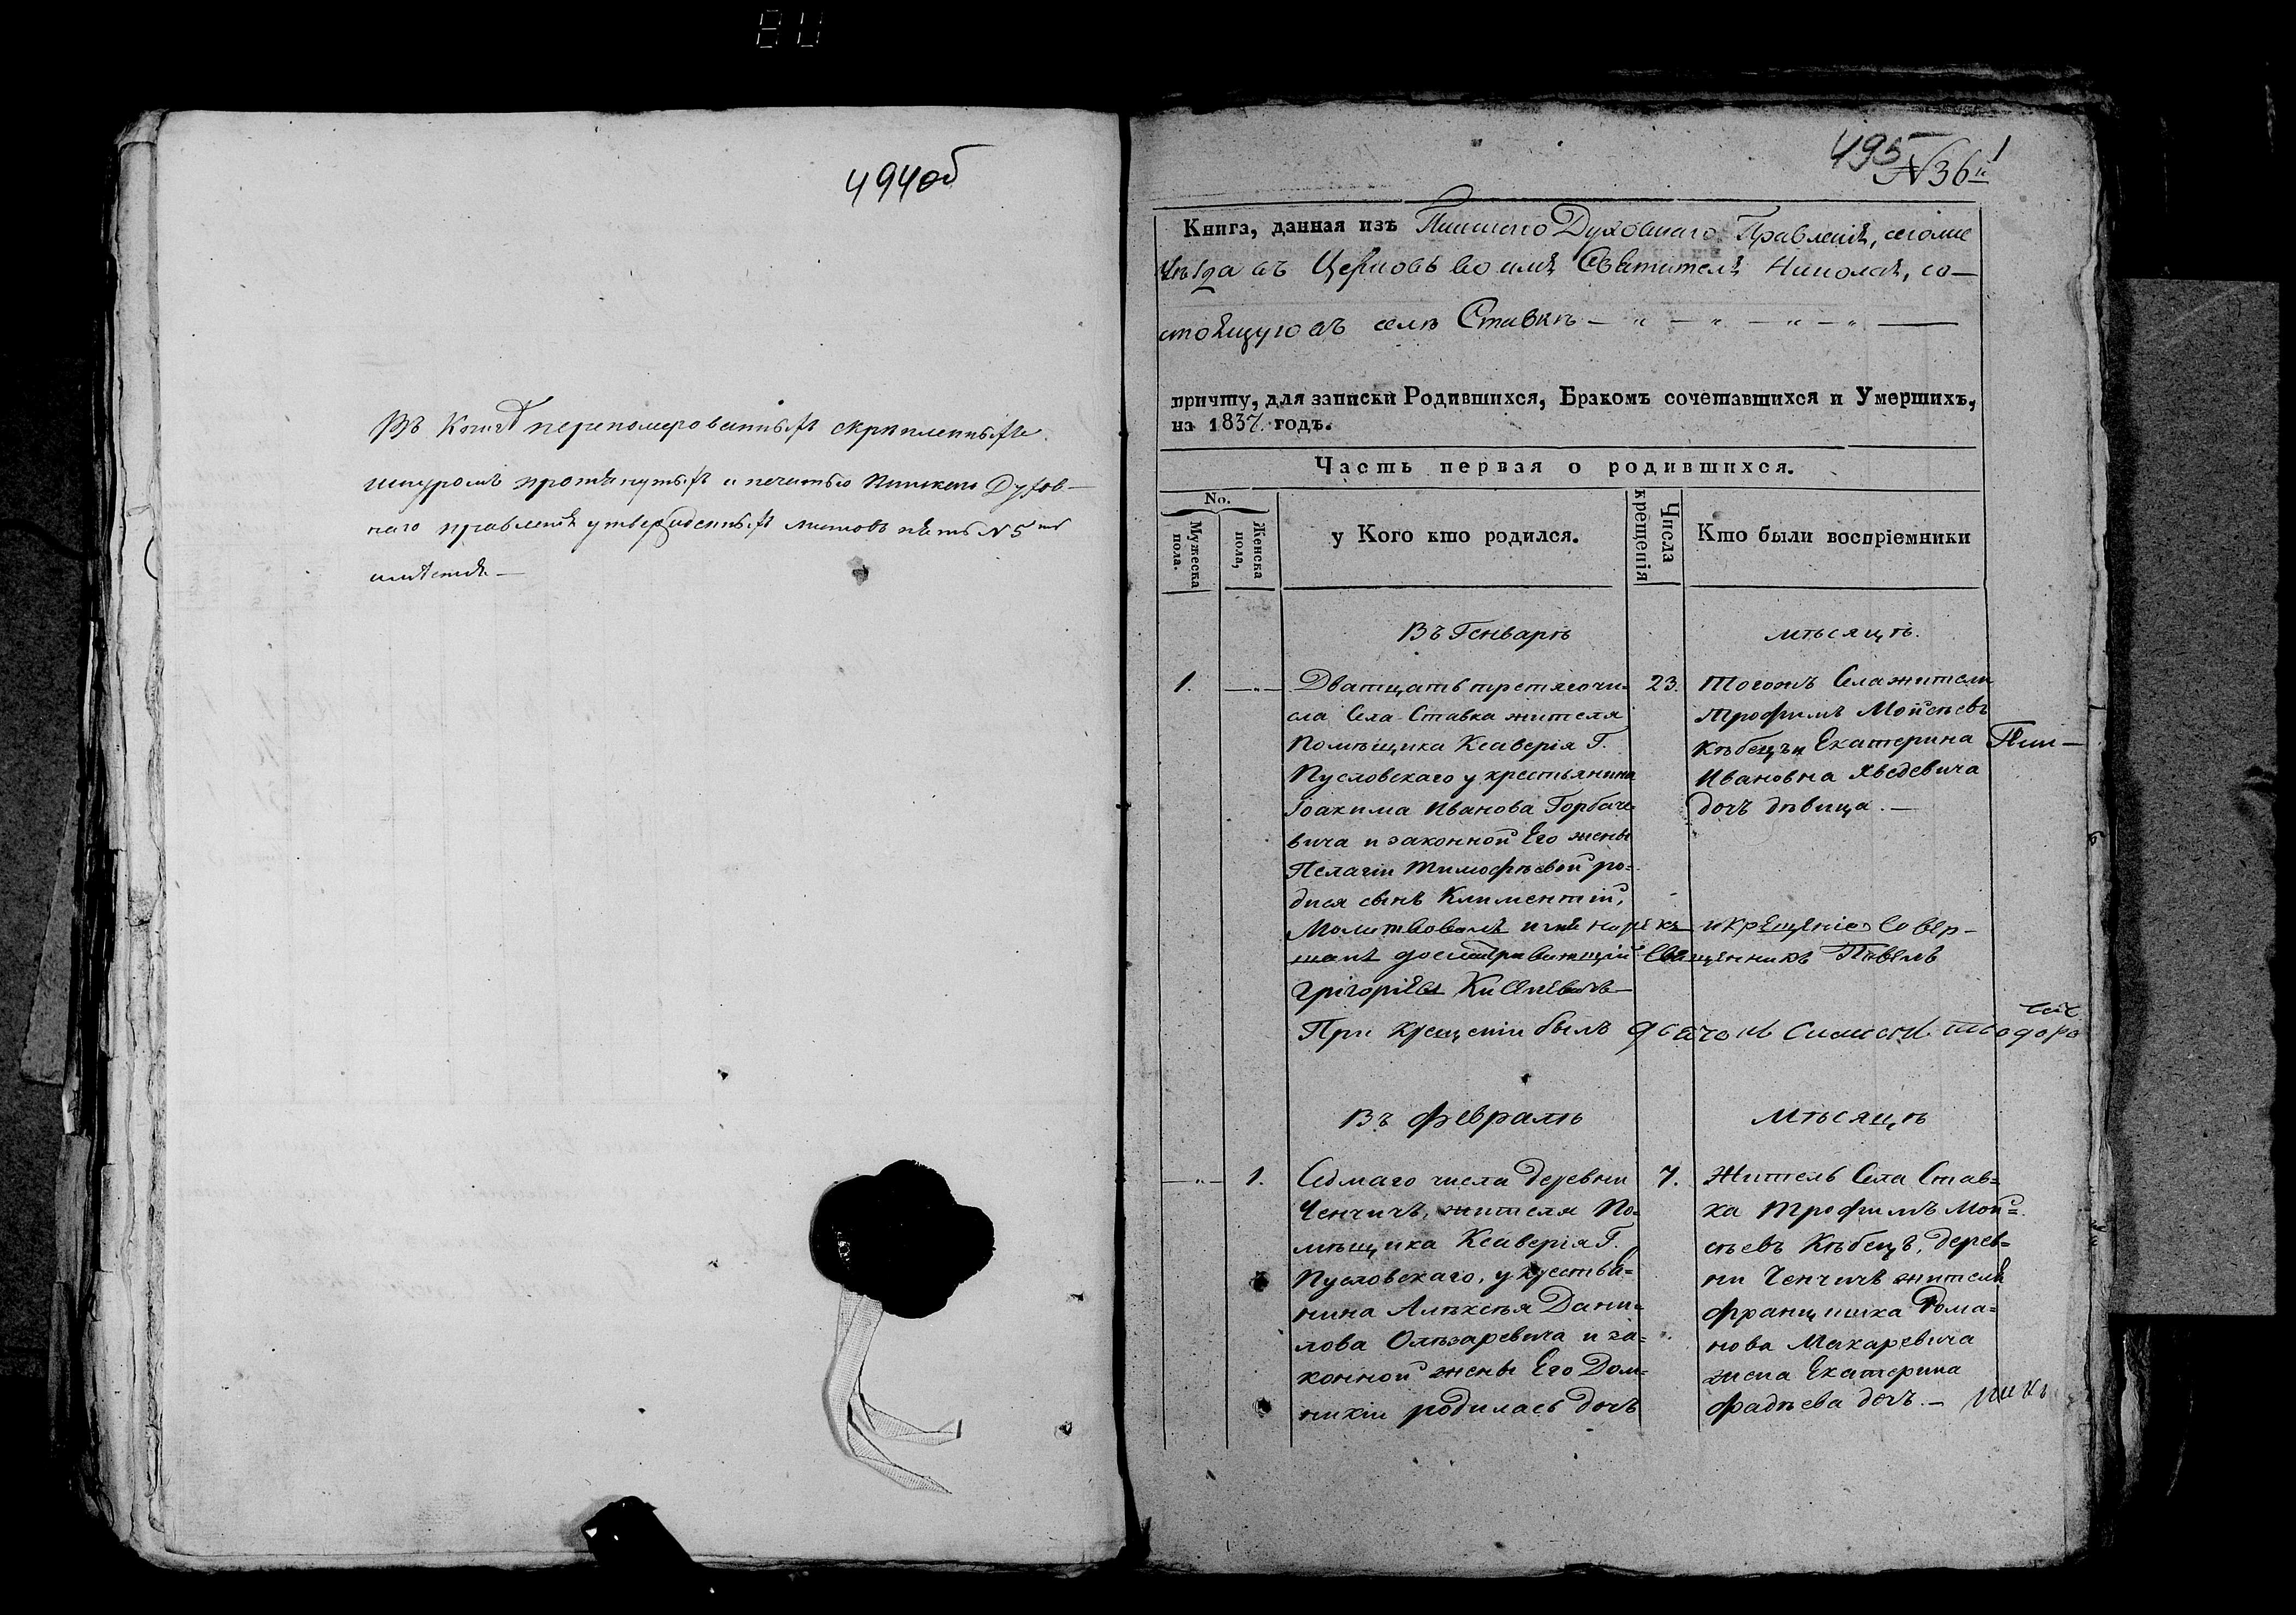 494об
Въ Книгѣ перенумерованныхъ скрѣпленныхъ
шнуромъ протянутыхъ и печатью Пинскаго Духов-
наго правленія утвержденныхъ листовъ пять N 5ть
имѣется —
495
N 36й
1
Книга, данная изъ Пинскаго Духовнаго Правленія, сегоже
уѣзда въ Церковь во имя Святителя Николая, со—
стоящую въ селѣ Ставкѣ — „ — „ — „ — „ —
причту, для записки Родившихся, Бракомъ сочетавшихся и Умершихъ,
на 1837. годъ.
Часть первая о родившихся.
No.
Мужеска пола.
Женска пола,
у Кого кто родился.
Числа крещенія
Кто были воспріемники
Въ Генварѣ
мѣсяцѣ.
1.
— „ —
Дватцать третяго чи-
сла Села Ставка жителя
Помѣщика Ксаверія Г.
Пусловскаго у крестьянина
Іоакима Иванова Горбаче-
вича и законной Его жены
Пелагіи Тимофѣевой ро=
дися сынъ Климентій,
23.
Тогожъ Села жители
Трофимъ Мойсѣевъ
Кѣбецъ и Екатерина
Ивановна Хведевича
дочъ дѣвица. —
Пин—
Молитвовалъ имя нарѣкъ и крещеніе совер-
шалъ досматривающій Священникъ Павелъ
Григоріевъ Киселевичъ
При крещеніи былъ дьячокъ Симеонъ Ѳеодоро
Въ Февралѣ
Мѣсяцѣ
— „ —
1.
Седмаго числа деревни
Ченчичъ, жителя По=
мѣщика Ксаверія Г.
Пусловскаго, у крестья=
нина Алѣксѣя Дани=
лова Олѣзаревича и за=
конной жены Его Дом=
никіи родилась дочъ
7.
Житель Села Став=
ка Трофимъ Мой=
сѣевъ Кѣбецъ, дерев=
ни Ченчичъ жителя
Францишка Рома=
нова Макаревича
жена Екатерина
Фадѣева дочъ. —